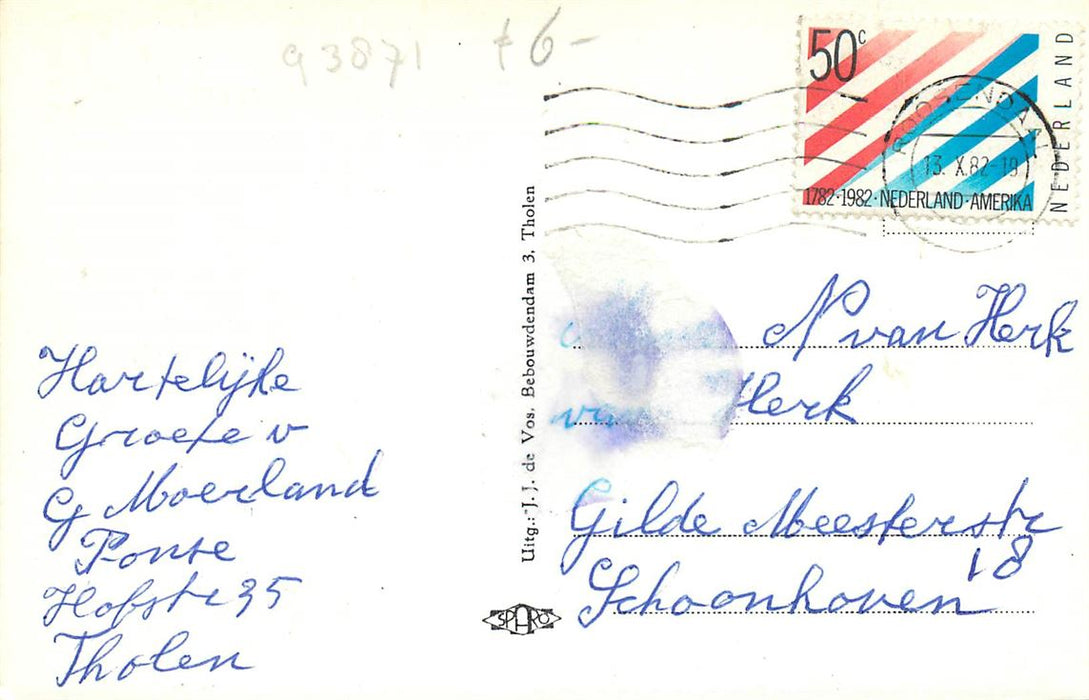 93871 f 6-
50c
NEDERLAND
1782·1982·NEDERLAND·AMERIKA
ROOSENDAAL
13.X.82-19
Uitg.: J. J. de Vos. Bebouwdendam 3, Tholen
SPARO
Hartelijke
Groete v
G Moerland
Hofstr 35
Tholen
N van Herk
van Herk
Gilde Meesterstr
18
Schoonhoven